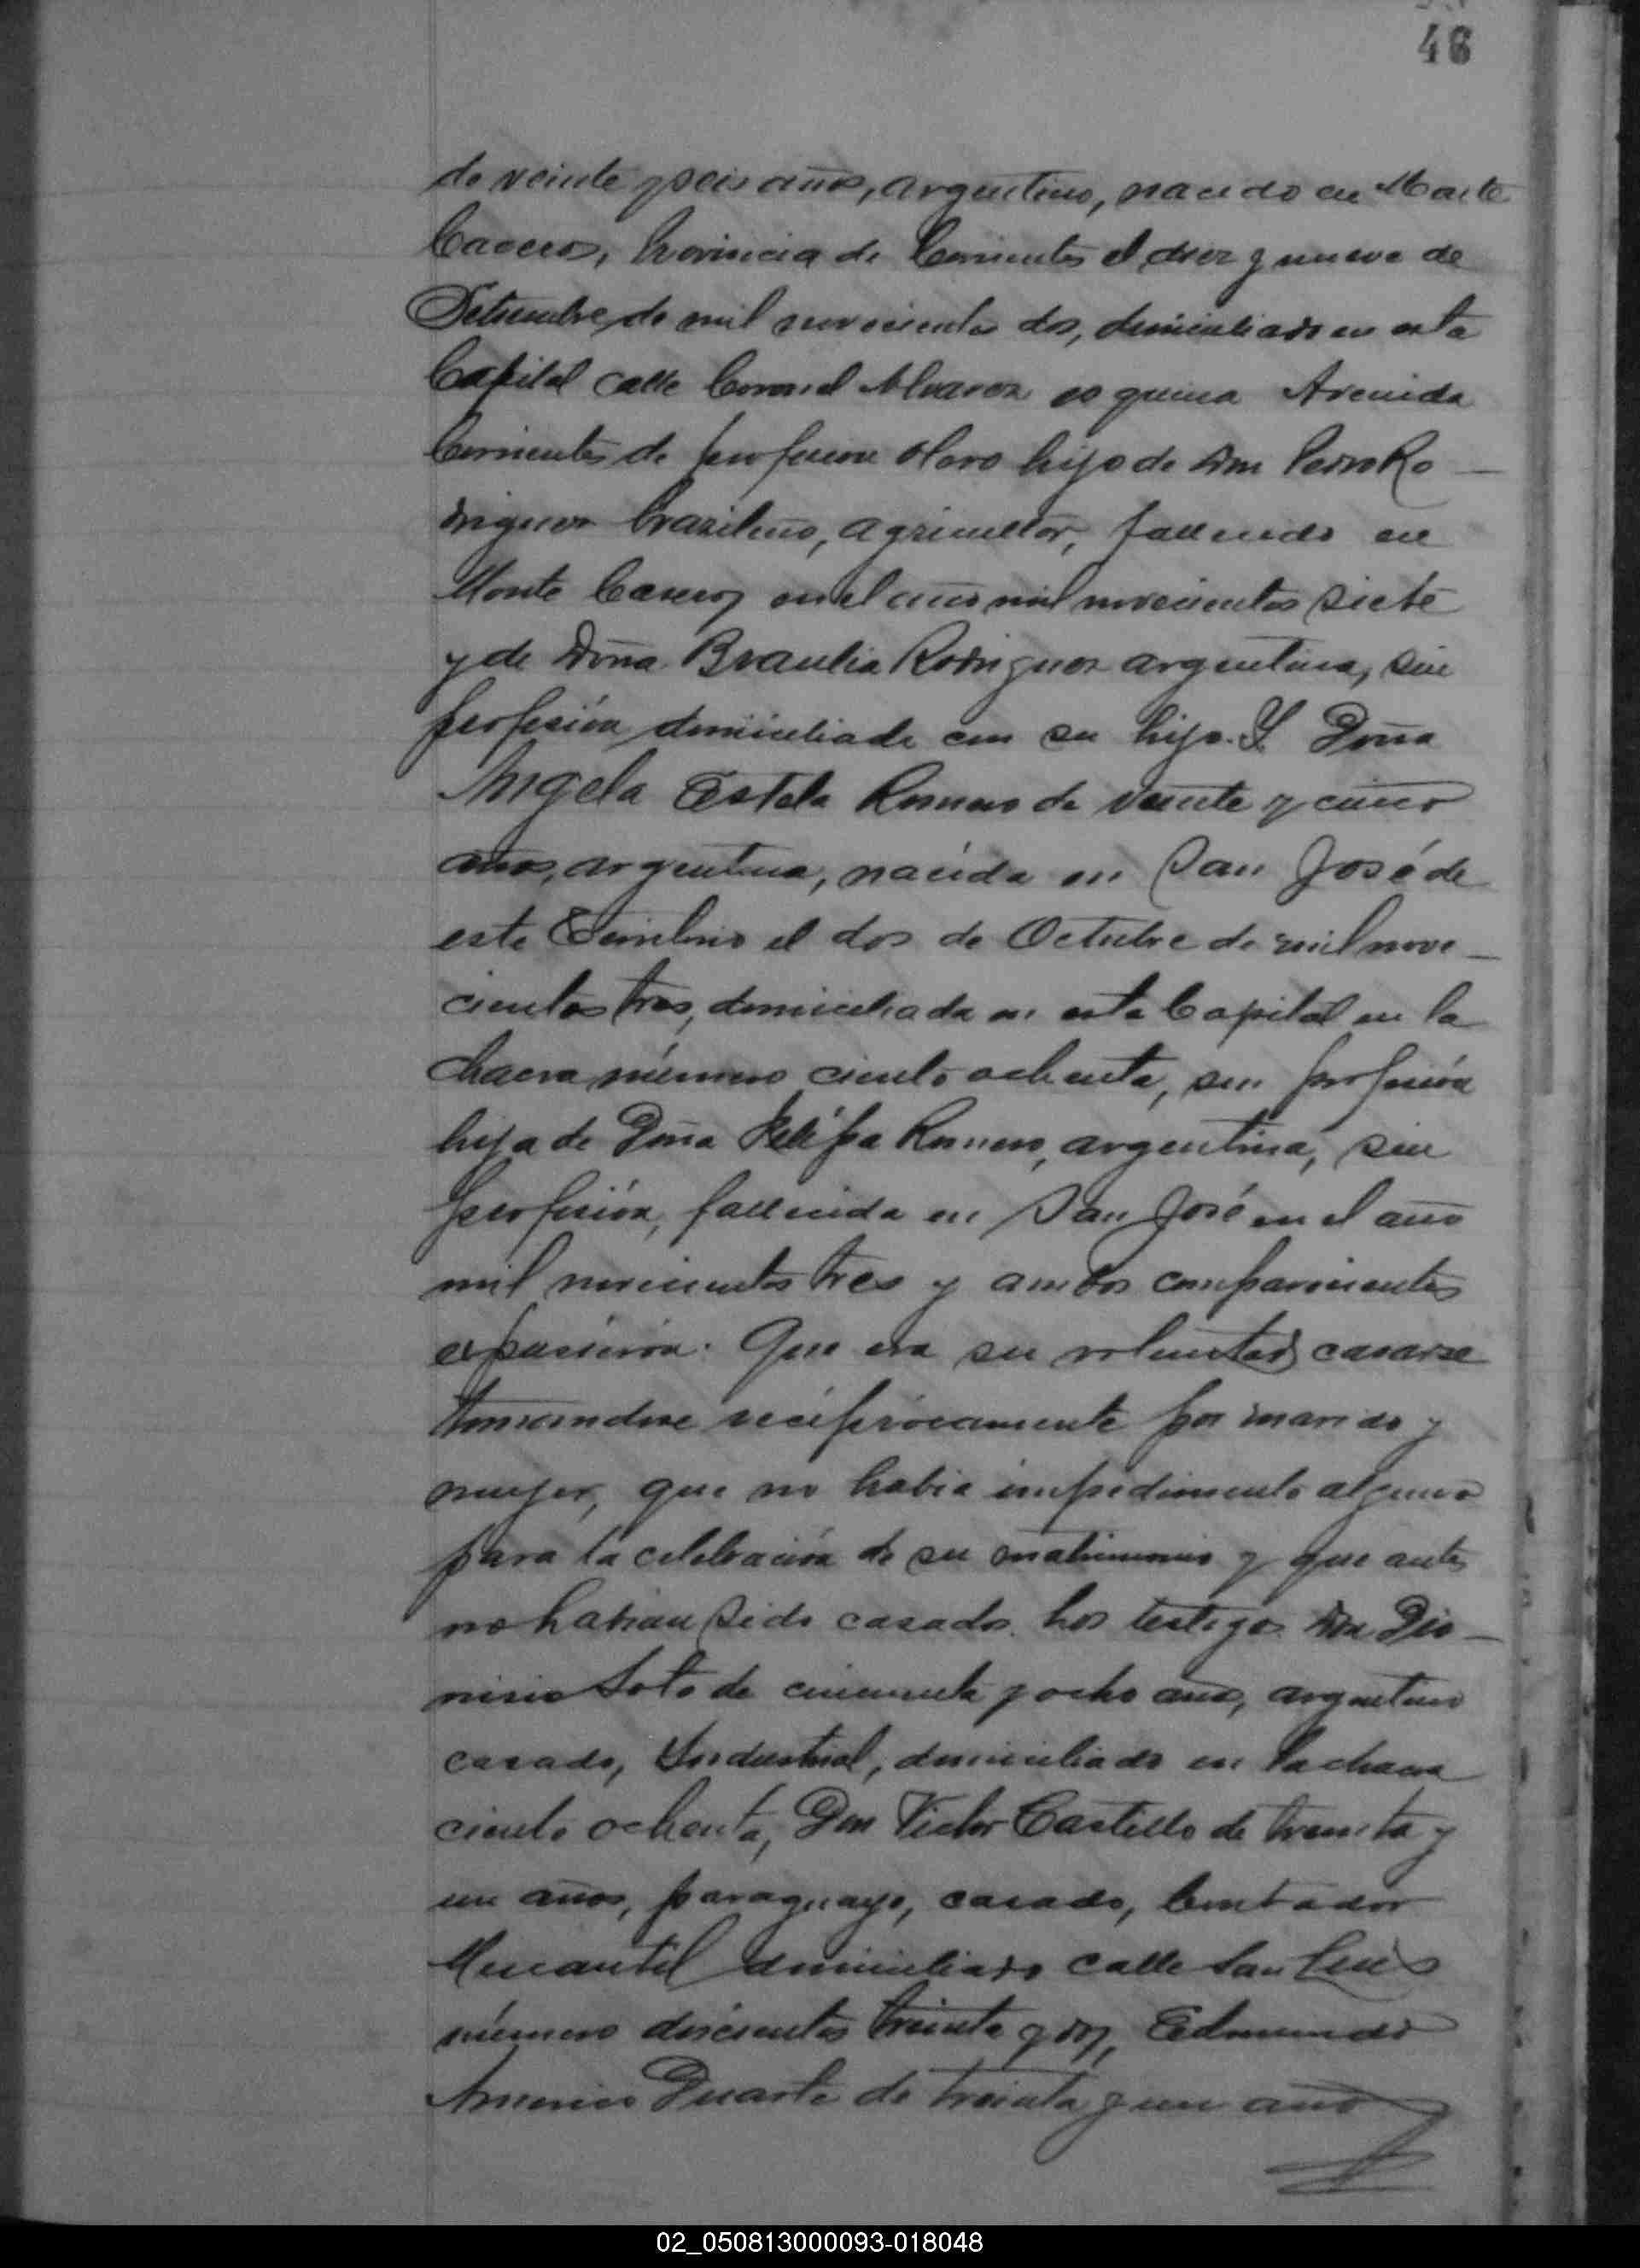 46
de veinte y seis años, argentino, nacido en Monte
Caceros, Provincia de Corrientes el diez y nueve de
Setiembre de mil novecientos dos, domiciliado en esta
Capital calle Coronel Alvarez esquina Avenida
Corrientes de profesion hijo de Don Pedro Ro—
driguez brasileño, agricultor, fallecido en
Monte Caseros en el año mil novecientos siete
y de Doña Braulia Rodriguez argentina, sin
profesión domiciliada con su hijo. Y Doña
Angela Estela Romero de veinte y cinco
años, argentina, nacida en San José de
este Territorio el dos de Octubre de mil nove—
cientos tres, domiciliada en esta Capital en la
chacra número ciento ochenta, sin profesión
hija de Doña Felipa Romero, argentina, sin
profesión, fallecida en San José en el año
mil novecientos tres y ambos comparecientes
expusieron: Que era su voluntad casarse
tomandose reciprocamente por marido y
mujer, que no habia impedimento alguno
para la celebración de su matrimonio y que antes
no habian sido casados. Los testigos Don Dio—
nisio Soto de cincuenta y ocho años, argentino
casado, Industrial, domiciliado en la chacra
ciento ochenta, Don Victor Castillo de treinta y
un años, paraguayo, casado, Contador
Mercantil domiciliado calle San Luis
número doscientos treinta y dos, Edmundo
Americo Duarte de treinta y un años
02_050813000093-018048